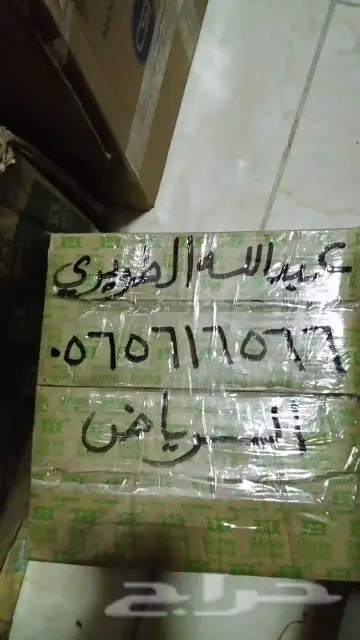 عبدالله الطويري
٠٥٦٥٦١٦٥٦٦
الرياض
حراج